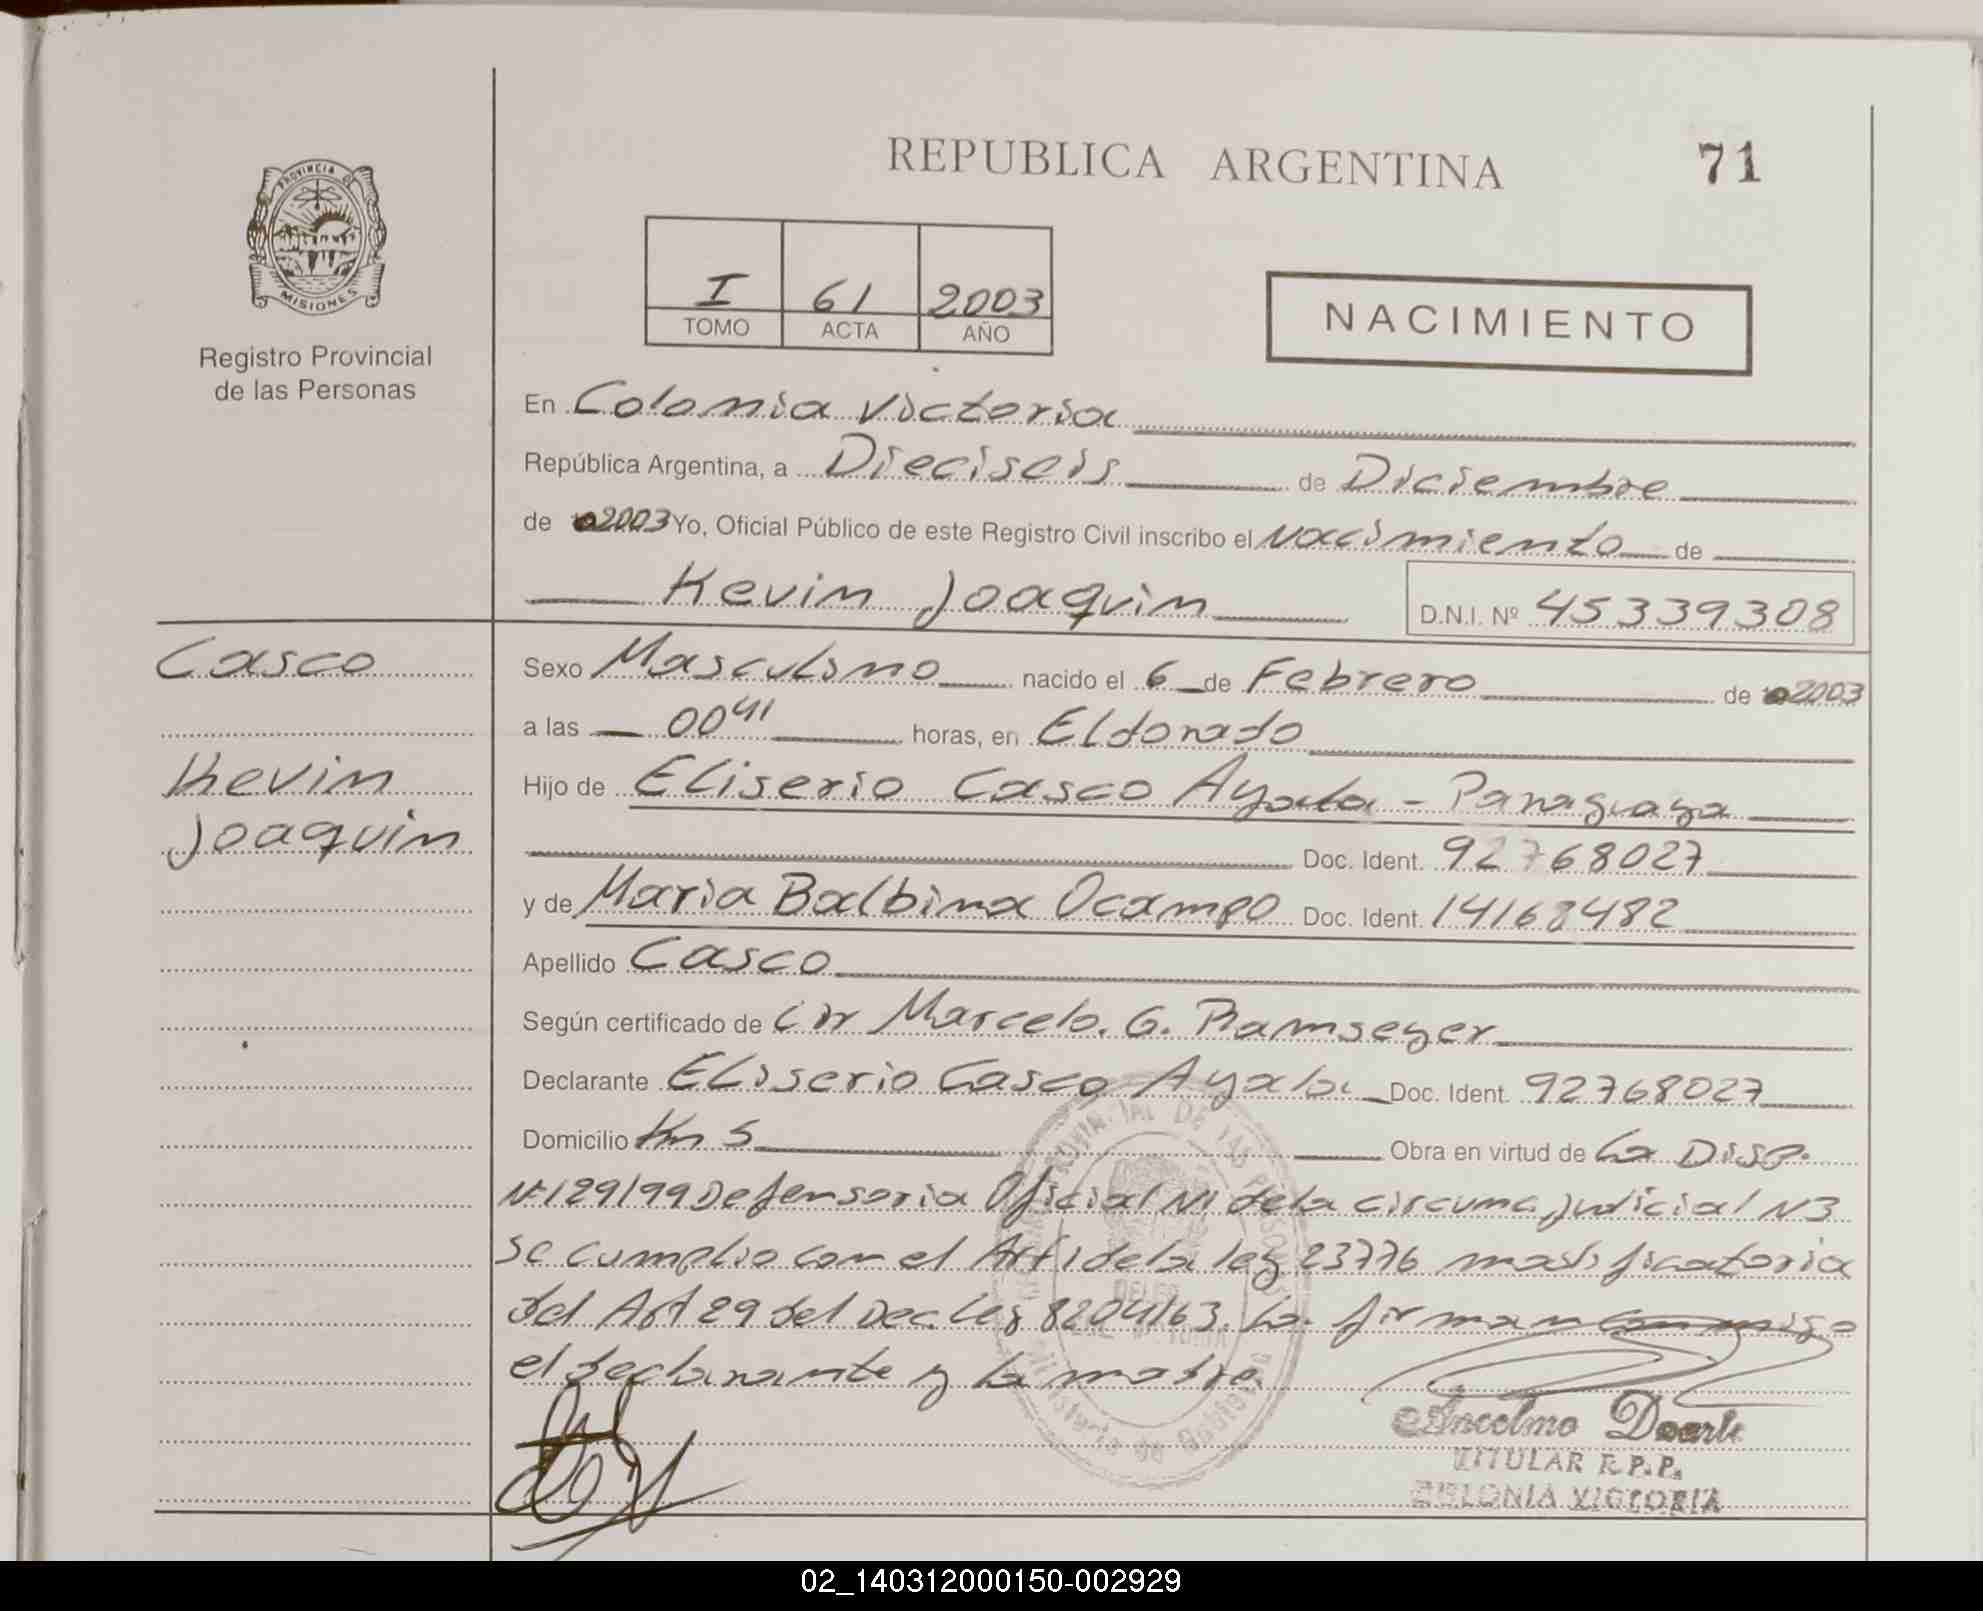 REPUBLICA ARGENTINA
71
PROVINCIA DE
MISIONES
Registro Provincial
de las Personas
I 61 2003
TOMO ACTA AÑO
NACIMIENTO
En Colonia Victoria
República Argentina, a Dieciseis de Diciembre
de 2003 Yo, Oficial Público de este Registro Civil inscribo el Nacimiento de
Kevin Joaquin D.N.I. Nº 45339308
Casco
Kevin
Joaquin
Sexo Masculino nacido el 6 de Febrero de 2003
a las 00 41 horas, en Eldorado
Hijo de Eliserio Casco Ayala - Paraguaya
Doc. Ident. 92768027
y de Maria Balbina Ocampo Doc. Ident. 14168482
Apellido Casco
Según certificado de Dr Marcelo. G. Ramseyer
Declarante Eliserio Casco Ayala Doc. Ident. 92768027
Domicilio Km 5 Obra en virtud de La Disp.
Nº129/99 Defensoria Oficial N1 de la circunc, judicial N3
se cumplio con el Art 1 de la ley 23776 modificatoria
del Art 29 del Dec. Ley 8204/63. La. firman conmigo
el declarante y la madre.
Ancelmo Duarte
TITULAR R.P.P.
COLONIA VICTORIA
02_140312000150-002929